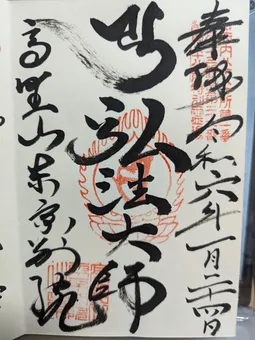 奉拝 令和六年一月二十四日
弘法大師
高野山東京別院